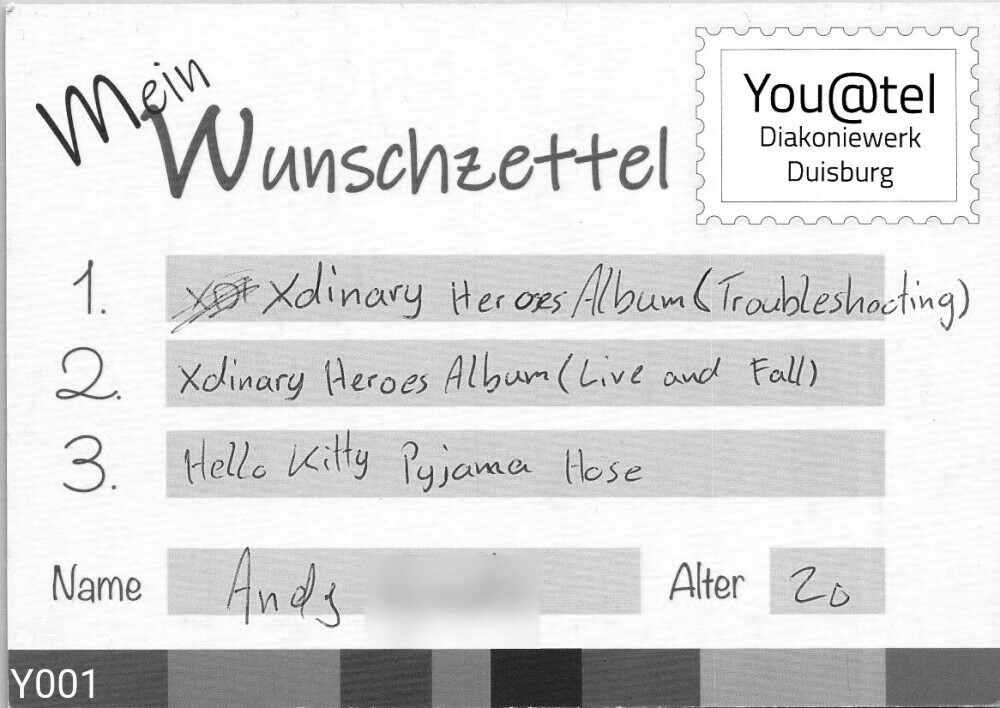 Mein
Wunschzettel
You@tel
Diakoniewerk
Duisburg
1. Xdinary Heroes Album (Troubleshooting)
2. Xdinary Heroes Album (Live and Fall)
3. Hello Kitty Pyjama Hose
Name Andy
Alter 20
Y001